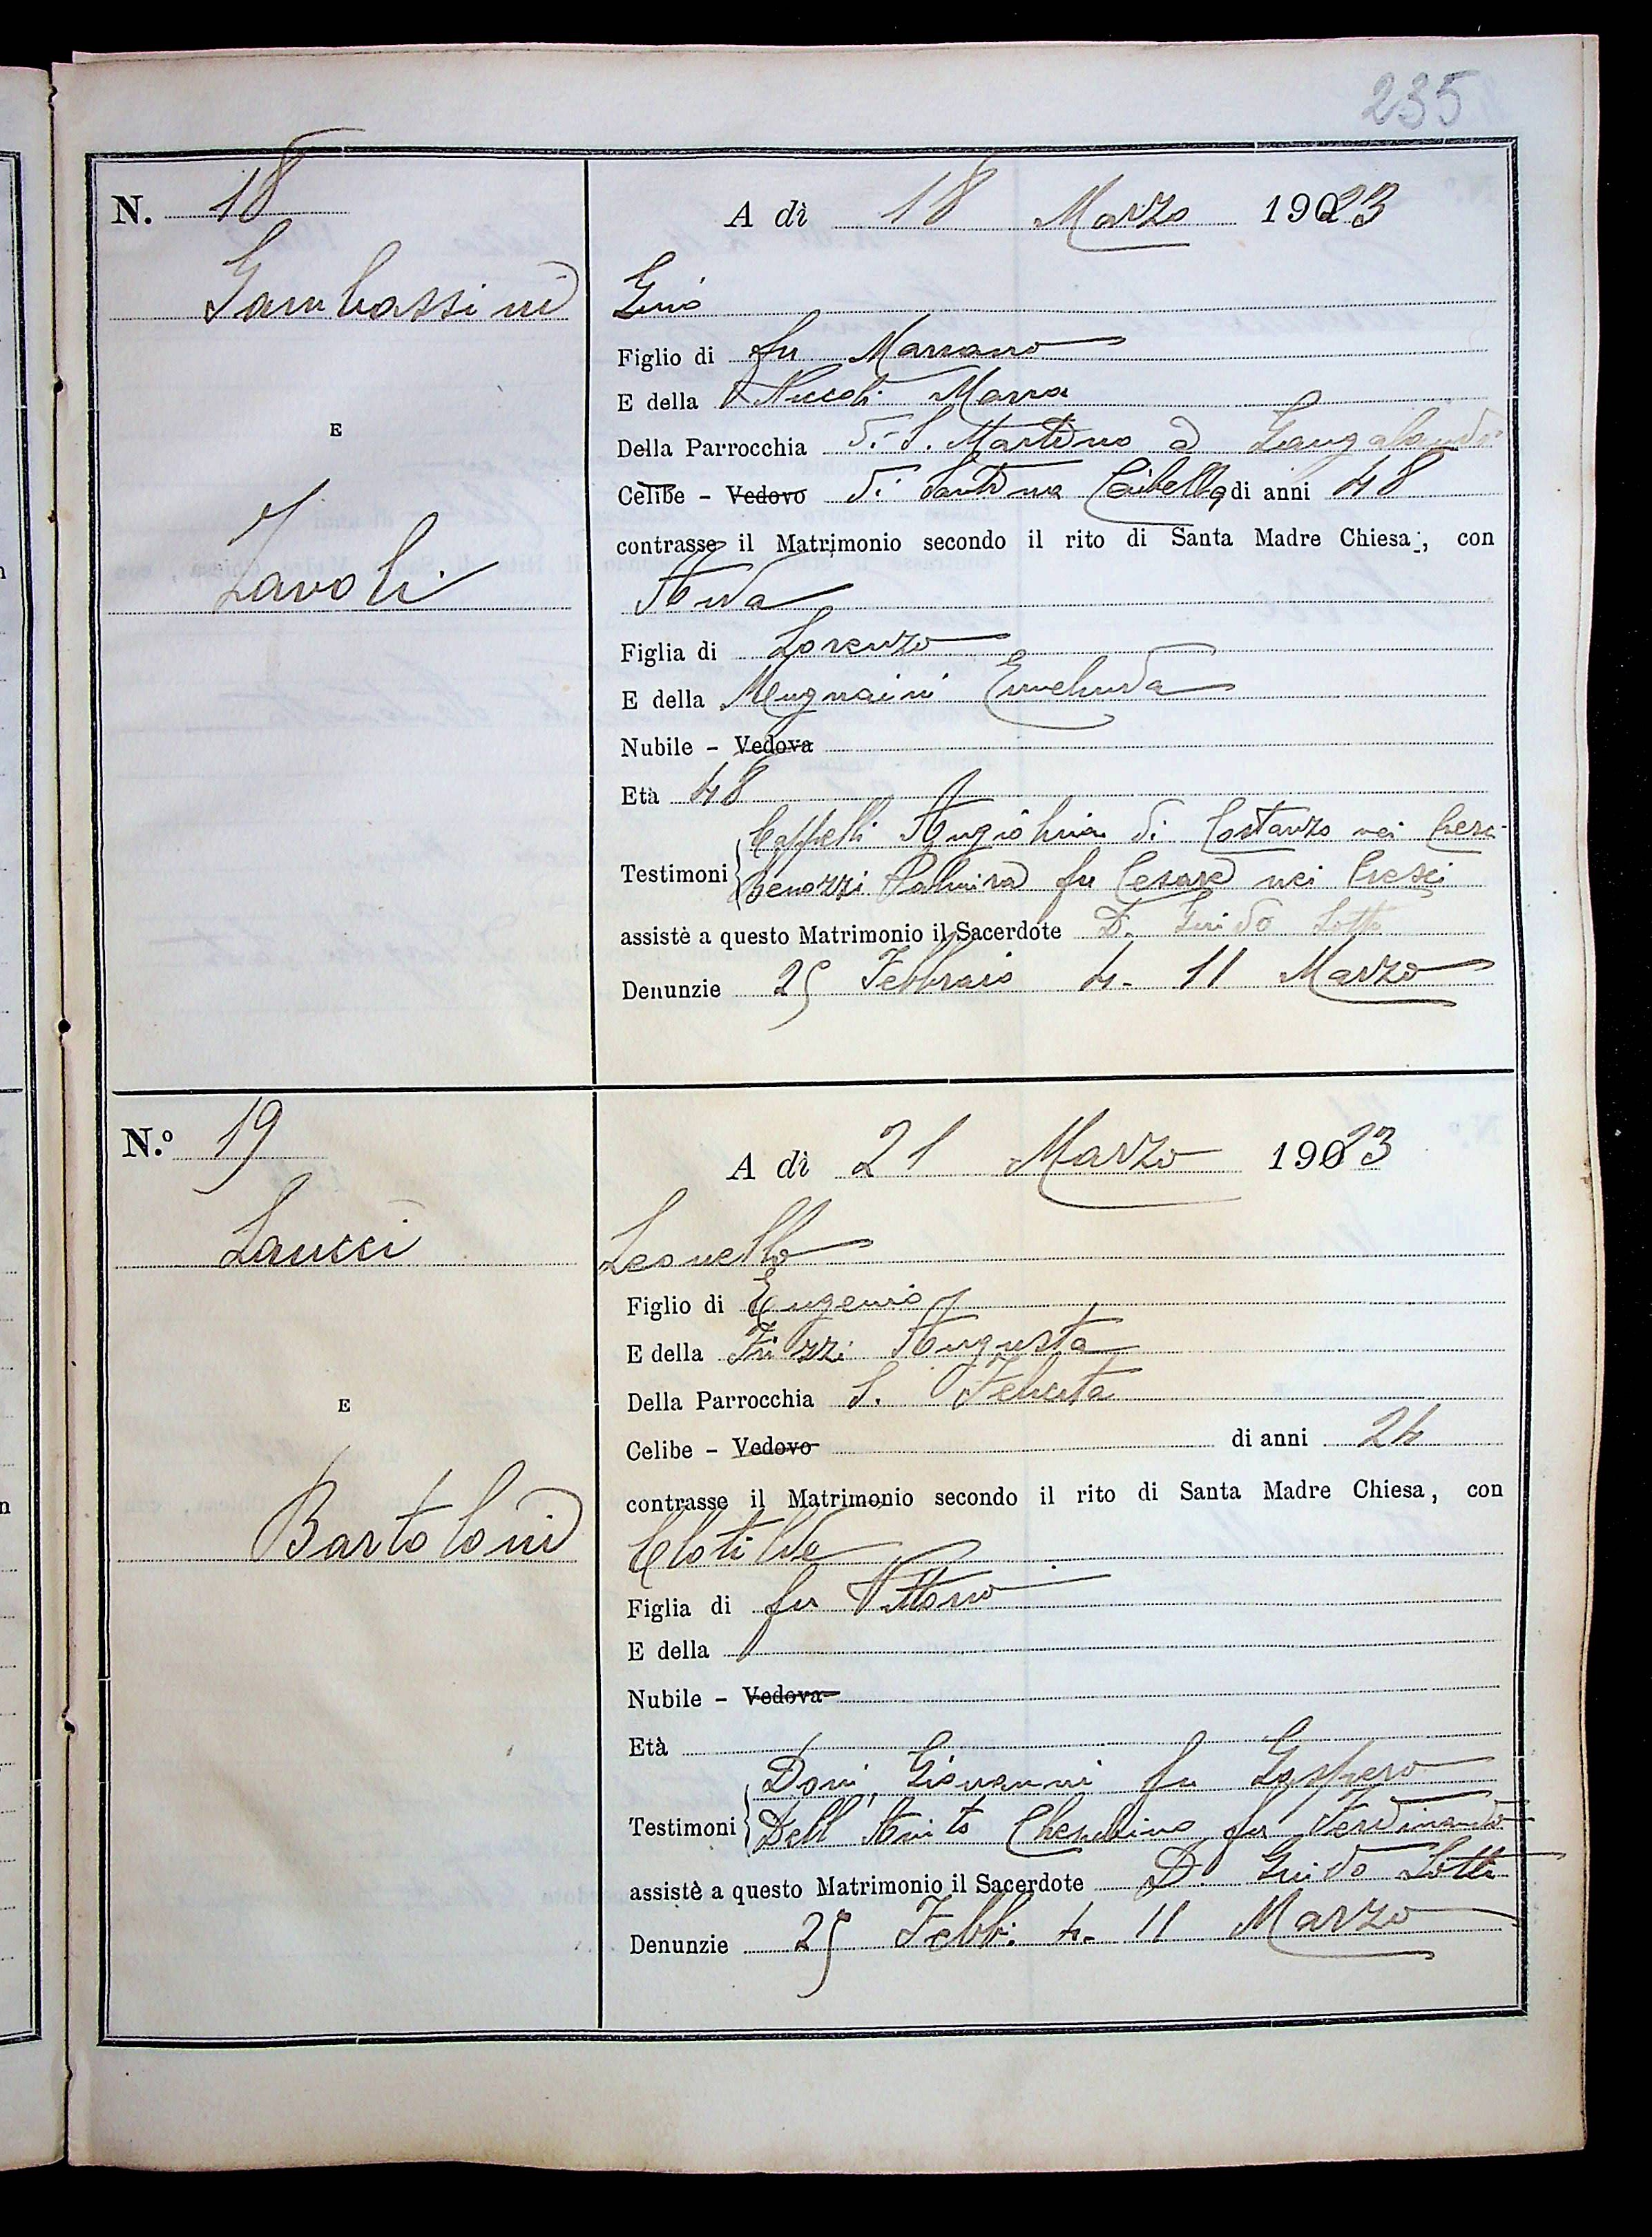 235
N. 18
A dì 18 Marzo 1923
Gambassini
Gino
Figlio di fu Mariano
E della Niccoli Maria
E
Della Parrocchia di S. Martino a Gangalandi
Celibe - Vedovo di Santina di anni 48
contrasse il Matrimonio secondo il rito di Santa Madre Chiesa, con
Zavoli
Aida
Figlia di Lorenzo
E della Mugnaini Ermelinda
Nubile - Vedova
Età 48
Testimoni
Cappelli Angiolina di Costanzo nei Cresci
Benozzi Palmira fu Cesare nei Cresci
assistè a questo Matrimonio il Sacerdote D. Guido Lotti
Denunzie 25 Febbraio 4 - 11 Marzo
N.º 19
A dì 21 Marzo 1923
Lancci
Leonello
Figlio di Eugenio
E della Augusta
Della Parrocchia S. Felicita
E
Celibe - Vedovo di anni 24
contrasse il Matrimonio secondo il rito di Santa Madre Chiesa, con
Bartoloni
Clotilde
Figlia di fu Vittorio
E della
Nubile - Vedova
Età
Doni Giovanni fu Gaspero
Testimoni
Dell' Amico Cherubino fu Ferdinando
assistè a questo Matrimonio il Sacerdote D. Guido Lotti
Denunzie 25 Febb: 4 - 11 Marzo